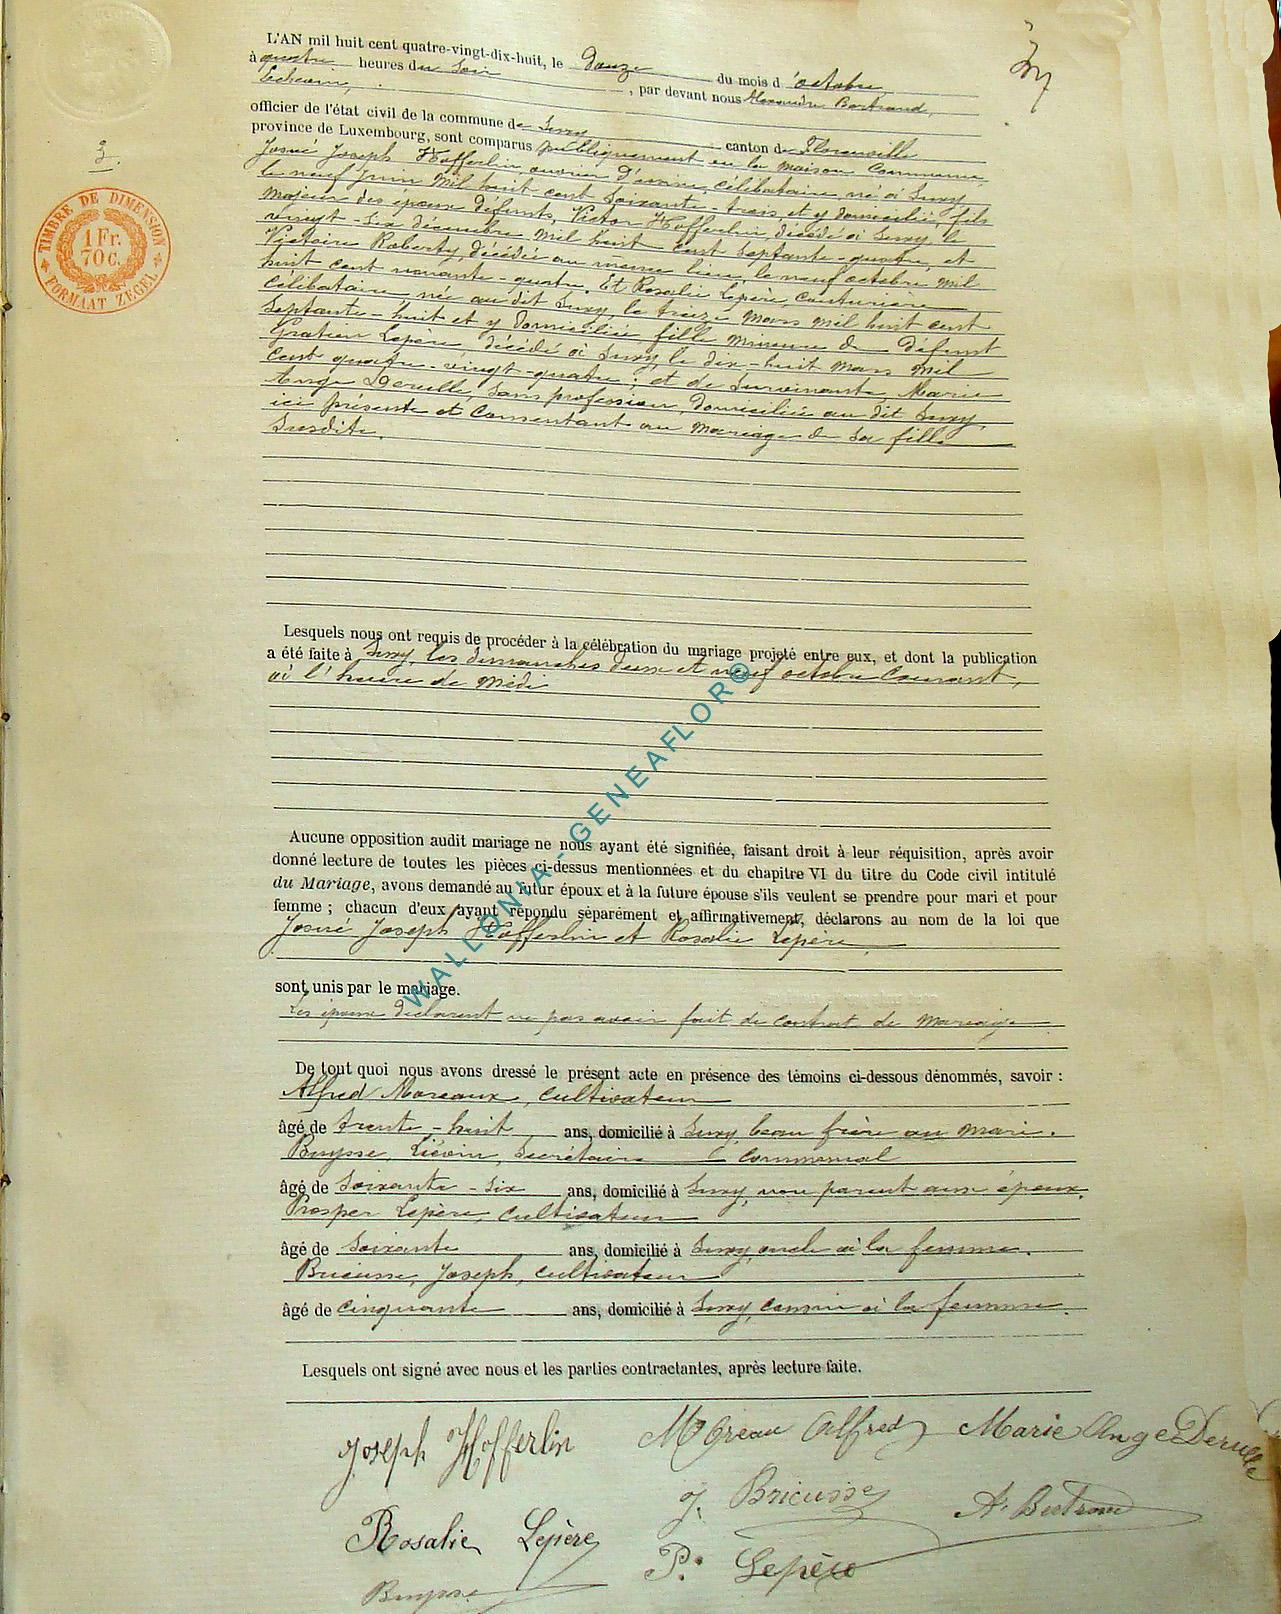 L'AN mil huit cent quatre-vingt-dix-huit, le douze du mois d'octobre
à quatre heures du soir, par devant nous Alexandre Bertrand,
Echevin,
officier de l'état civil de la commune de Suxy canton de Florenville
province de Luxembourg, sont comparus publiquement en la maison commune,
Josué Joseph Hofferlin, ouvrier d'usine, célibataire, né à Suxy,
le neuf juin mil huit cent soixante-trois, et y domicilié, fils
majeur des époux défunts, Victor Hofferlin décédé à Suxy le
vingt-six décembre mil huit cent septante-quatre, et
Victoire Roberty, décédée au même lieu, le neuf octobre mil
huit cent nonante-quatre, Et Rosalie Lepère, couturière
célibataire, née au dit Suxy, le treize mars mil huit cent
septante-huit et y domiciliée, fille mineure de défunt
Gratien Lepère, décédé à Suxy, le dix-huit mars mil
cent quatre-vingt-quatre; et de survivante, Marie
Ange Derulle, sans profession, domiciliée au dit Suxy,
ici présente et consentant au mariage de sa fille
susdite.
3.
TIMBRE DE DIMENSION
1 Fr.
70 C.
FORMAAT ZEGEL
Lesquels nous ont requis de procéder à la célébration du mariage projeté entre eux, et dont la publication
a été faite à Suxy, les dimanches deux et neuf octobre courant,
à l'heure de midi
Aucune opposition audit mariage ne nous ayant été signifiée, faisant droit à leur réquisition, après avoir
donné lecture de toutes les pièces ci-dessus mentionnées et du chapitre VI du titre du Code civil intitulé
du Mariage, avons demandé au futur époux et à la future épouse s'ils veulent se prendre pour mari et pour
femme ; chacun d'eux ayant répondu séparément et affirmativement, déclarons au nom de la loi que
Josué Joseph Hofferlin et Rosalie Lepère
sont unis par le mariage.
Les époux déclarent ne pas avoir fait de contrat de mariage
De tout quoi nous avons dressé le présent acte en présence des témoins ci-dessous dénommés, savoir :
Alfred Moreaux, cultivateur
âgé de trente-huit ans, domicilié à Suxy, beau frère au mari.
Buysse, Liévin, secrétaire communal
âgé de soixante-six ans, domicilié à Suxy, non parent aux époux.
Prosper Lepère, cultivateur
âgé de soixante ans, domicilié à Suxy, oncle à la femme.
Bricusse, Joseph, cultivateur
âgé de cinquante ans, domicilié à Suxy, cousin à la femme.
Lesquels ont signé avec nous et les parties contractantes, après lecture faite.
Joseph Hofferlin Moreau Alfred Marie Ange Derulle
J. Bricusse A. Bertrand
Rosalie Lepère P. Lepère
Buysse
WALLONIA - GENEAFLOR©